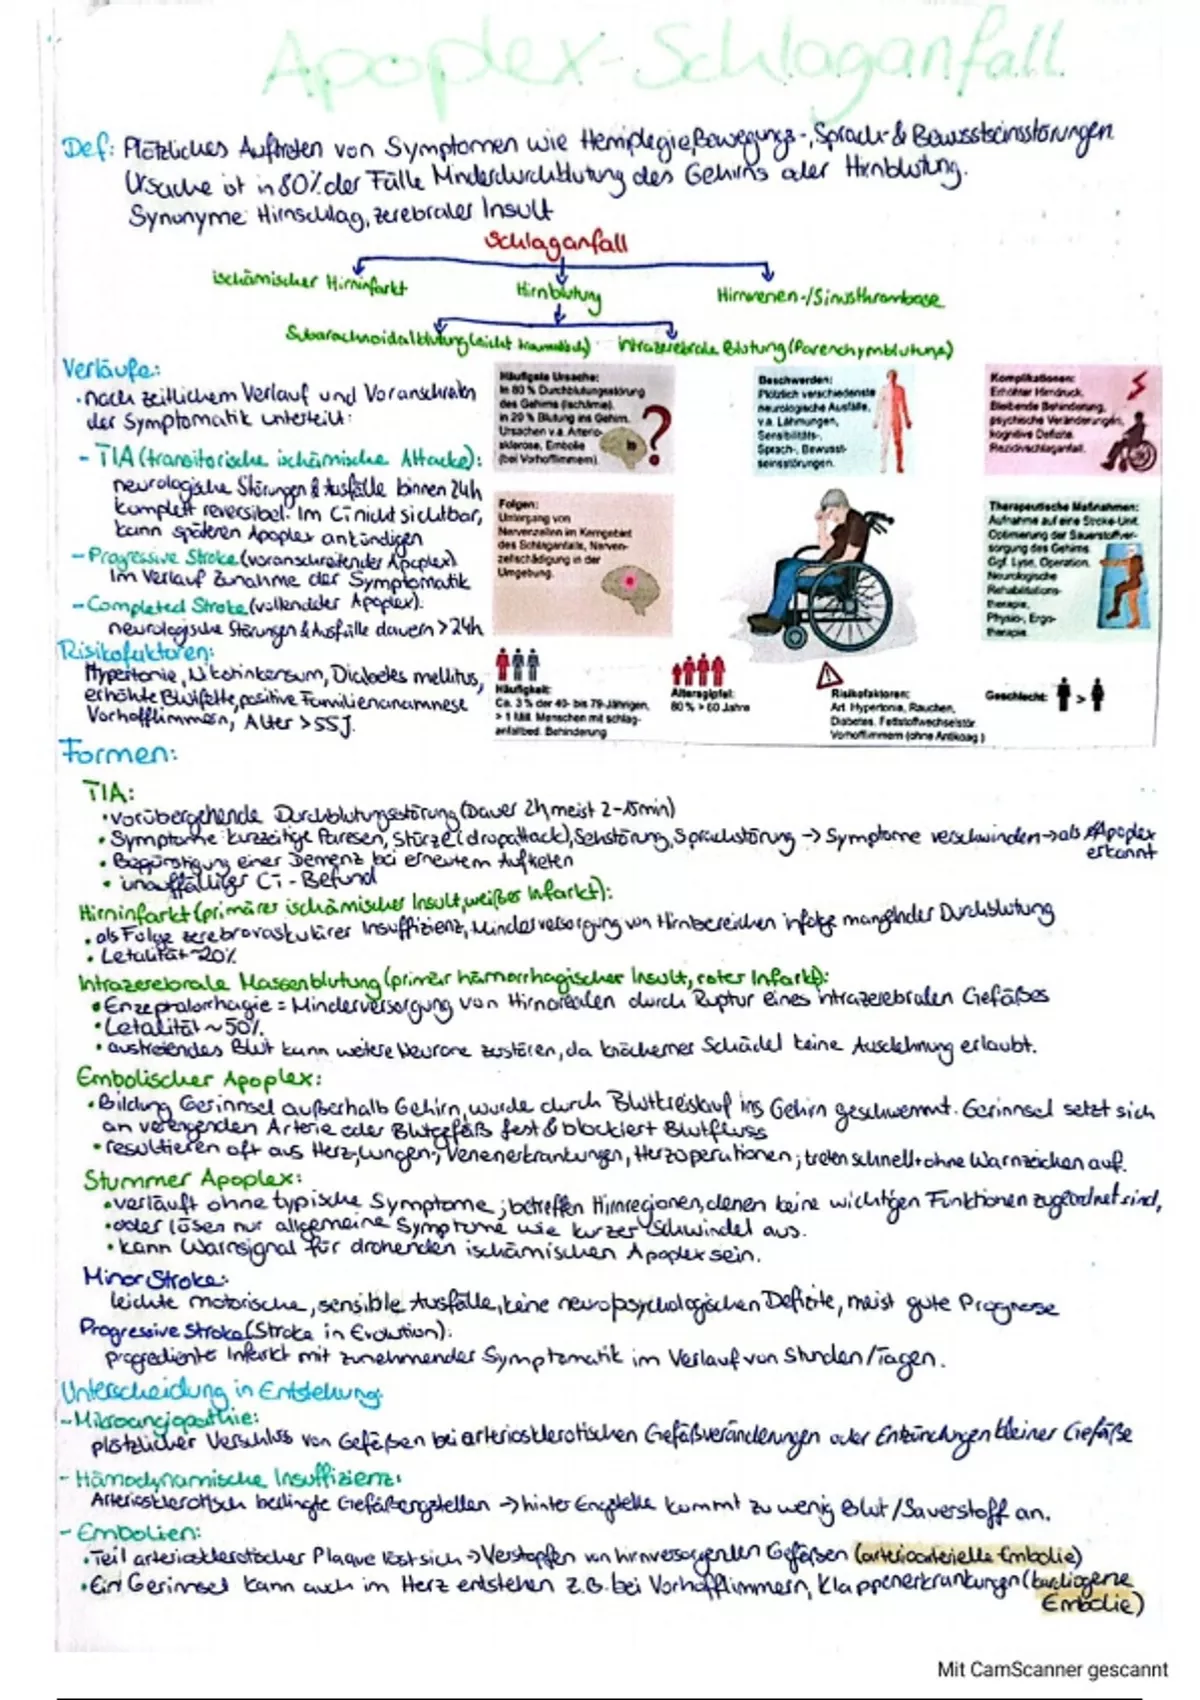 Apoplex-Schlaganfall
Def: Plötzliches Auftreten von Symptomen wie Hemiplegie, Bewegungs-, Sprach- & Bewusstseinsstörungen
Ursache ist in 80% der Fälle Minderdurchblutung des Gehirns oder Hirnblutung.
Synonyme: Hirnschlag, zerebraler Insult
Schlaganfall
ischämischer Hirninfarkt
Hirnblutung
Hirnvenen-/Sinusthrombose
Subarachnoidalblutung (leicht traumatisch)
intrazerebrale Blutung (Parenchymblutung)
Verläufe:
• nach zeitlichem Verlauf und Voranschreiten
der Symptomatik unterteilt:
- TIA (transitorische ischämische Attacke):
neurologische Störungen & Ausfälle binnen 24h
komplett reversibel. Im CT nicht sichtbar,
kann späteren Apoplex ankündigen
- Progressive Stroke (voranschreitender Apoplex)
Im Verlauf Zunahme der Symptomatik
- Completed Stroke (vollendeter Apoplex):
neurologische Störungen & Ausfälle dauern >24h
Risikofaktoren:
Hypertonie, Nikotinkonsum, Diabetes mellitus,
erhöhte Blutfette, positive Familienanamnese
Vorhofflimmern, Alter >55J.
Häufigste Ursache:
In 80 % Durchblutungsstörung
des Gehirns (Ischämie).
in 20 % Blutung ins Gehirn.
Ursachen v.a. Arterio-
sklerose, Embolie
(bei Vorhofflimmern).
?
Beschwerden:
Plötzlich verschiedenste
neurologische Ausfälle,
v.a. Lähmungen,
Sensibilitäts-,
Sprach-, Bewusst-
seinsstörungen.
Komplikationen:
Erhöhter Hirndruck,
Bleibende Behinderung,
psychische Veränderungen,
kognitive Defizite.
Rezidivschlaganfall.
Folgen:
Untergang von
Nervenzellen im Kerngebiet
des Schlaganfalls, Nerven-
zellschädigung in der
Umgebung.
Therapeutische Maßnahmen:
Aufnahme auf eine Stroke-Unit.
Optimierung der Sauerstoffver-
sorgung des Gehirns.
Ggf. Lyse, Operation.
Neurologische
Rehabilitations-
therapie,
Physio-, Ergo-
therapie.
Häufigkeit:
Ca. 3 % der 40- bis 79-Jährigen,
> 1 Mill. Menschen mit schlag-
anfallbed. Behinderung
Altersgipfel:
80 % > 60 Jahre
Risikofaktoren:
Art. Hypertonie, Rauchen,
Diabetes, Fettstoffwechselstör.
Vorhofflimmern (ohne Antikoag.)
Geschlecht: >
Formen:
TIA:
• vorübergehende Durchblutungsstörung (Dauer 2h, meist 2-15min)
• Symptome: kurzzeitige Paresen, Stürze (dropattack), Sehstörung, Sprachstörung → Symptome verschwinden → als Apoplex
erkannt
• Begünstigung einer Demenz bei erneutem Auftreten
• unauffälliger CT-Befund
Hirninfarkt (primärer ischämischer Insult, weißer Infarkt):
• als Folge zerebrovaskulärer Insuffizienz, Minderversorgung von Hirnbereichen infolge mangelnder Durchblutung
• Letalität ~20%
Intrazerebrale Massenblutung (primär hämorrhagischer Insult, roter Infarkt):
• Enzephalorrhagie = Minderversorgung von Hirnarealen durch Ruptur eines intrazerebralen Gefäßes
• Letalität ~50%
• austretendes Blut kann weitere Neurone zerstören, da knöcherner Schädel keine Ausdehnung erlaubt.
Embolischer Apoplex:
• Bildung Gerinnsel außerhalb Gehirn, wurde durch Blutkreislauf ins Gehirn geschwemmt. Gerinnsel setzt sich
an verengenden Arterie oder Blutgefäß fest & blockiert Blutfluss
• resultieren oft aus Herz-, Lungen-, Venenerkrankungen, Herzoperationen; treten schnell + ohne Warnzeichen auf.
Stummer Apoplex:
• verläuft ohne typische Symptome; betreffen Hirnregionen, denen keine wichtigen Funktionen zugeordnet sind,
• oder lösen nur allgemeine Symptome wie kurzer Schwindel aus.
• kann Warnsignal für drohenden ischämischen Apoplex sein.
Minor Stroke:
leichte motorische, sensible Ausfälle, keine neuropsychologischen Defizite, meist gute Prognose
Progressive Stroke (Stroke in Evolution):
progrediente Infarkt mit zunehmender Symptomatik im Verlauf von Stunden/Tagen.
Unterscheidung in Entstehung:
- Mikroangiopathie:
plötzlicher Verschluss von Gefäßen bei arteriosklerotischen Gefäßveränderungen oder Entzündungen kleiner Gefäße
- Hämodynamische Insuffizienz:
Arteriosklerotisch bedingte Gefäßengstellen → hinter Engstelle kommt zu wenig Blut/Sauerstoff an.
- Embolien:
• Teil arteriosklerotischer Plaque löst sich → Verstopfen von hirnversorgenden Gefäßen (arterioarterielle Embolie)
• Ein Gerinnsel kann auch im Herz entstehen z.B. bei Vorhofflimmern, Klappenerkrankungen (kardiogene
Embolie)
Mit CamScanner gescannt